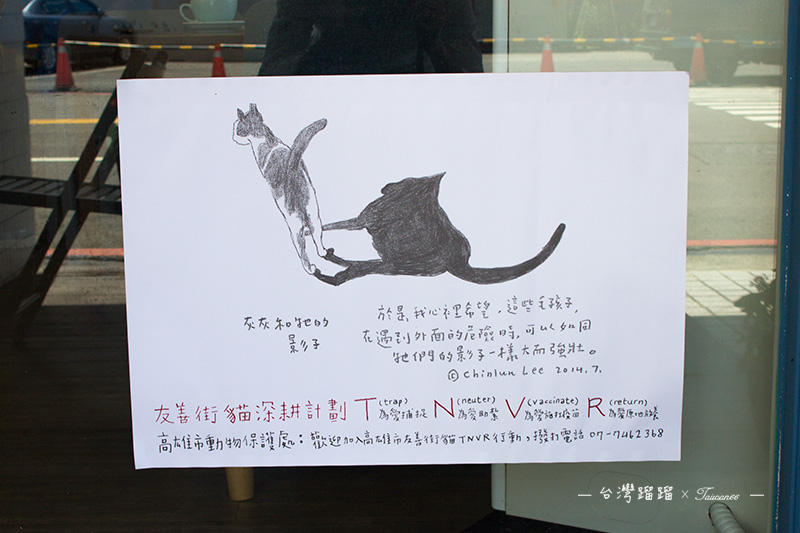 灰灰和牠的
影子
於是,我心裡希望,這些毛孩子,
在遇到外面的危險時,可以如同
牠們的影子一樣大而強壯。
© Chinlun Lee 2014.7.
友善街貓深耕計劃 T (trap) 為愛捕捉 N (neuter) 為愛助紮 V (vaccinate) 為愛施打疫苗 R (return) 為愛原地放養
高雄市動物保護處:歡迎加入高雄市友善街貓TNVR行動,撥打電話 07-7462368
— 台灣蹓蹓 × Taiwan66 —